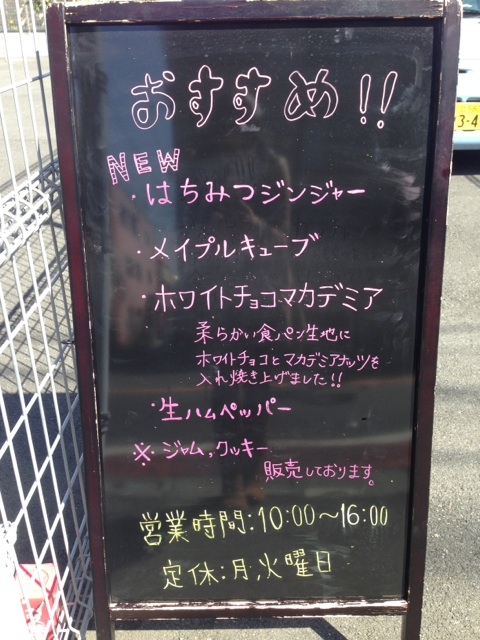 おすすめ!!
NEW
・はちみつジンジャー
・メイプルキューブ
・ホワイトチョコマカデミア
柔らかい食パン生地に
ホワイトチョコとマカデミアナッツを
入れ焼き上げました!!
・生ハムペッパー
※ジャム,クッキー
販売しております。
営業時間:10:00〜16:00
定休:月,火曜日
3-4